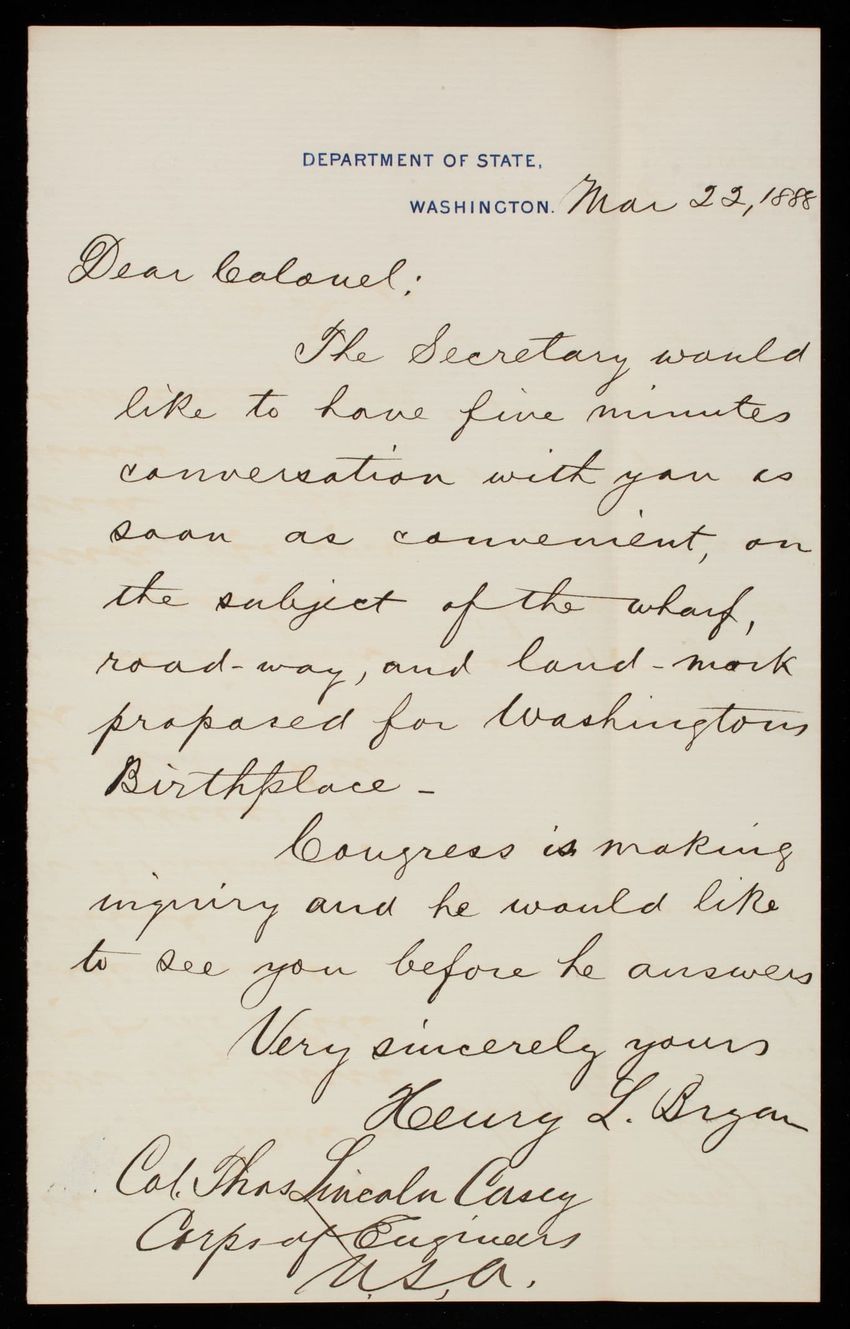 DEPARTMENT OF STATE,
WASHINGTON. Mar 22, 1888
Dear Colonel:
The Secretary would
like to have five minutes
conversation with you as
soon as convenient, on
the subject of the wharf,
road-way, and land-mark
proposed for Washingtons
Birthplace -
Congress is making
inquiry and he would like
to see you before he answers
Very sincerely yours
Henry L. Bryan
Col. Thos Lincoln Casey
Corps of Engineers
U.S.A.